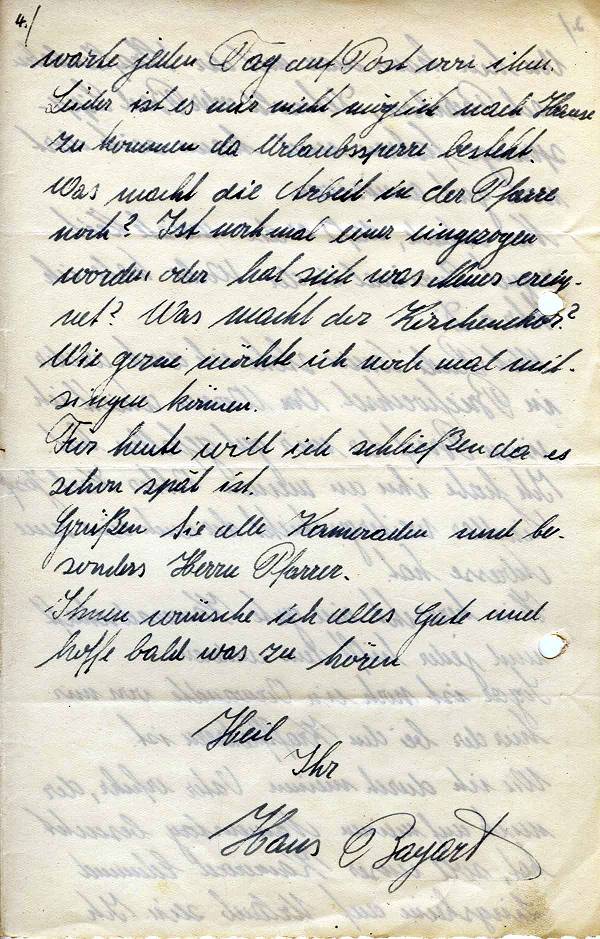 4.)
warte jeden Tag auf Post von ihm.
Leider ist es mir nicht möglich nach Hause
zu kommen da Urlaubssperre besteht.
Was macht die Arbeit in der Pfarre
noch? Ist nochmal einer eingezogen
worden oder hat sich was Neues ereig-
net? Was macht der Kirchenchor?
Wie gerne möchte ich noch mal mit-
singen können.
Für heute will ich schließen da es
schon spät ist.
Grüßen Sie alle Kameraden und be-
sonders Herrn Pfarrer.
Ihnen wünsche ich alles Gute und
hoffe bald was zu hören
Heil
Ihr
Hans Bayart